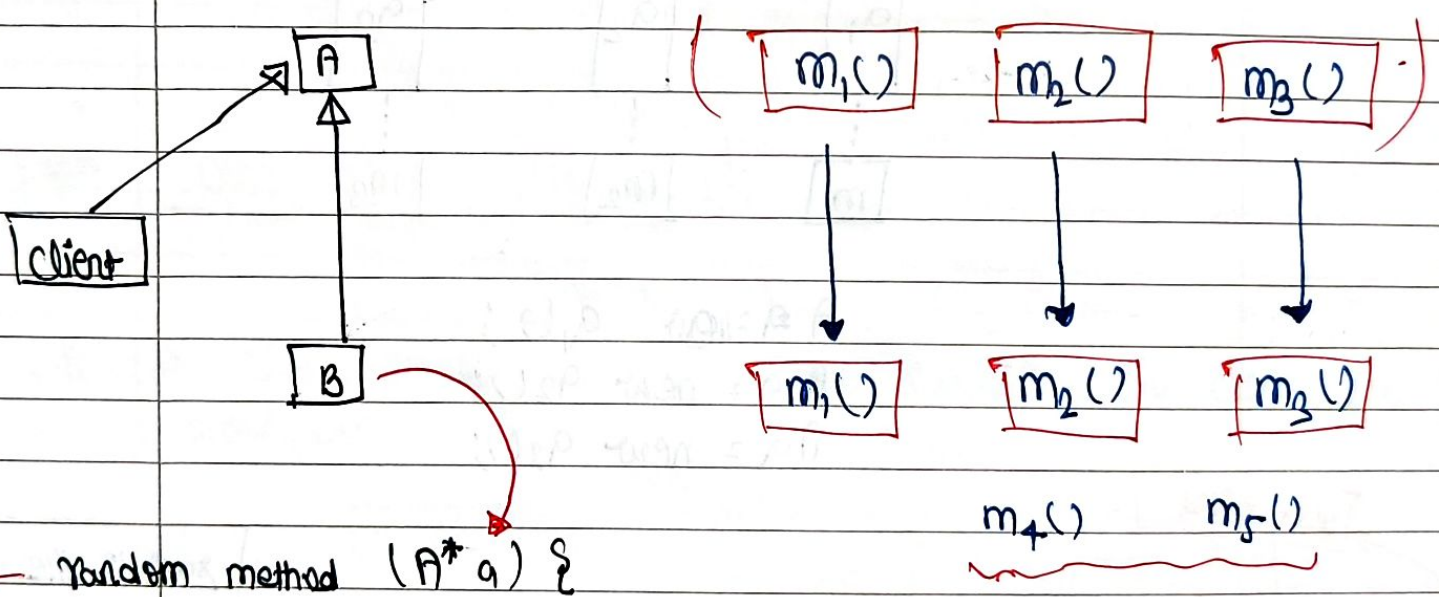 A
( m₁() m₂() m₃() )
client
B
m₁() m₂() m₃()
m₄() m₅()
random method (A* a) {